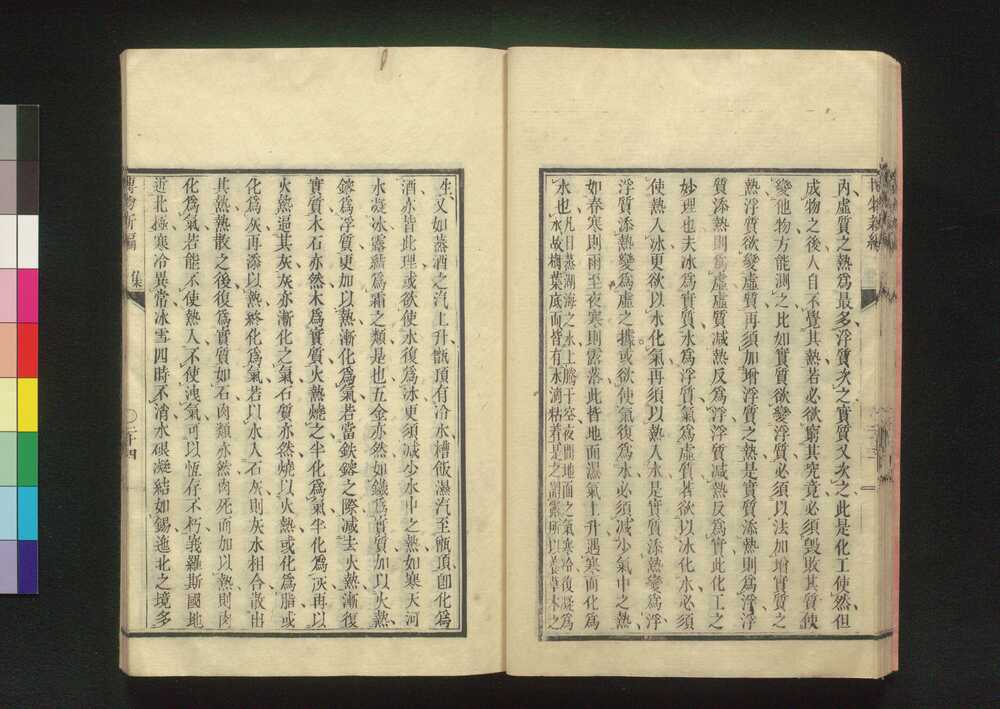 內虛質之熱爲最多浮質次之實質又次之此是化工使然但
成物之後人自不覺其熱若必欲窮其究竟必須毀敗其質使
變他物方能測之比如實質欲變浮質必須以法加增實質之
熱浮質欲變虛質再須加增浮質之熱是實質添熱則爲浮浮
質添熱則爲虛虛質減熱反爲浮浮質減熱反爲實此化工之
妙理也夫冰爲實質水爲浮質氣爲虛質若欲以冰化水必須
使熱入冰更欲以水化氣再須以熱入水是實質添熱變爲浮
浮質添熱變爲虛之據或欲使氣復爲水必須減少氣中之熱
如春寒則雨至夜寒則露落此皆地面濕氣上升遇寒而化爲
水也凡日蒸湖海之水上騰于空夜間地面之氣寒冷復凝爲
水故樹葉底面皆有水滴粘着是之謂露所以養草木之
生又如蒸酒之汽上升甑頂有冷水糟飯濕汽至甑頂卽化爲
酒亦皆此理或欲使水復爲冰更須減少水中之熱如寒天河
水凝冰露結爲霜之類是也五金亦然如鐵爲實質加以火熱
鎔爲浮質更加以熱漸化爲氣若當鉄鎔之際減去火熱漸復
實質木石亦然木爲實質火熱燒之半化爲氣半化爲灰再以
火熱逼其灰灰亦漸化之氣石質亦然燒以火熱或化爲脂或
化爲灰再添以熱終化爲氣若以水入石灰則灰水相合散出
其熱熱散之後復爲實質如石肉類亦然肉死而加以熱則肉
化爲氣若能不使熱入不使洩氣可以恆存不朽義羅斯國地
近北極寒冷異常冰雪四時不消水銀凝結如錫進北之境多
博物新編
集
二十四